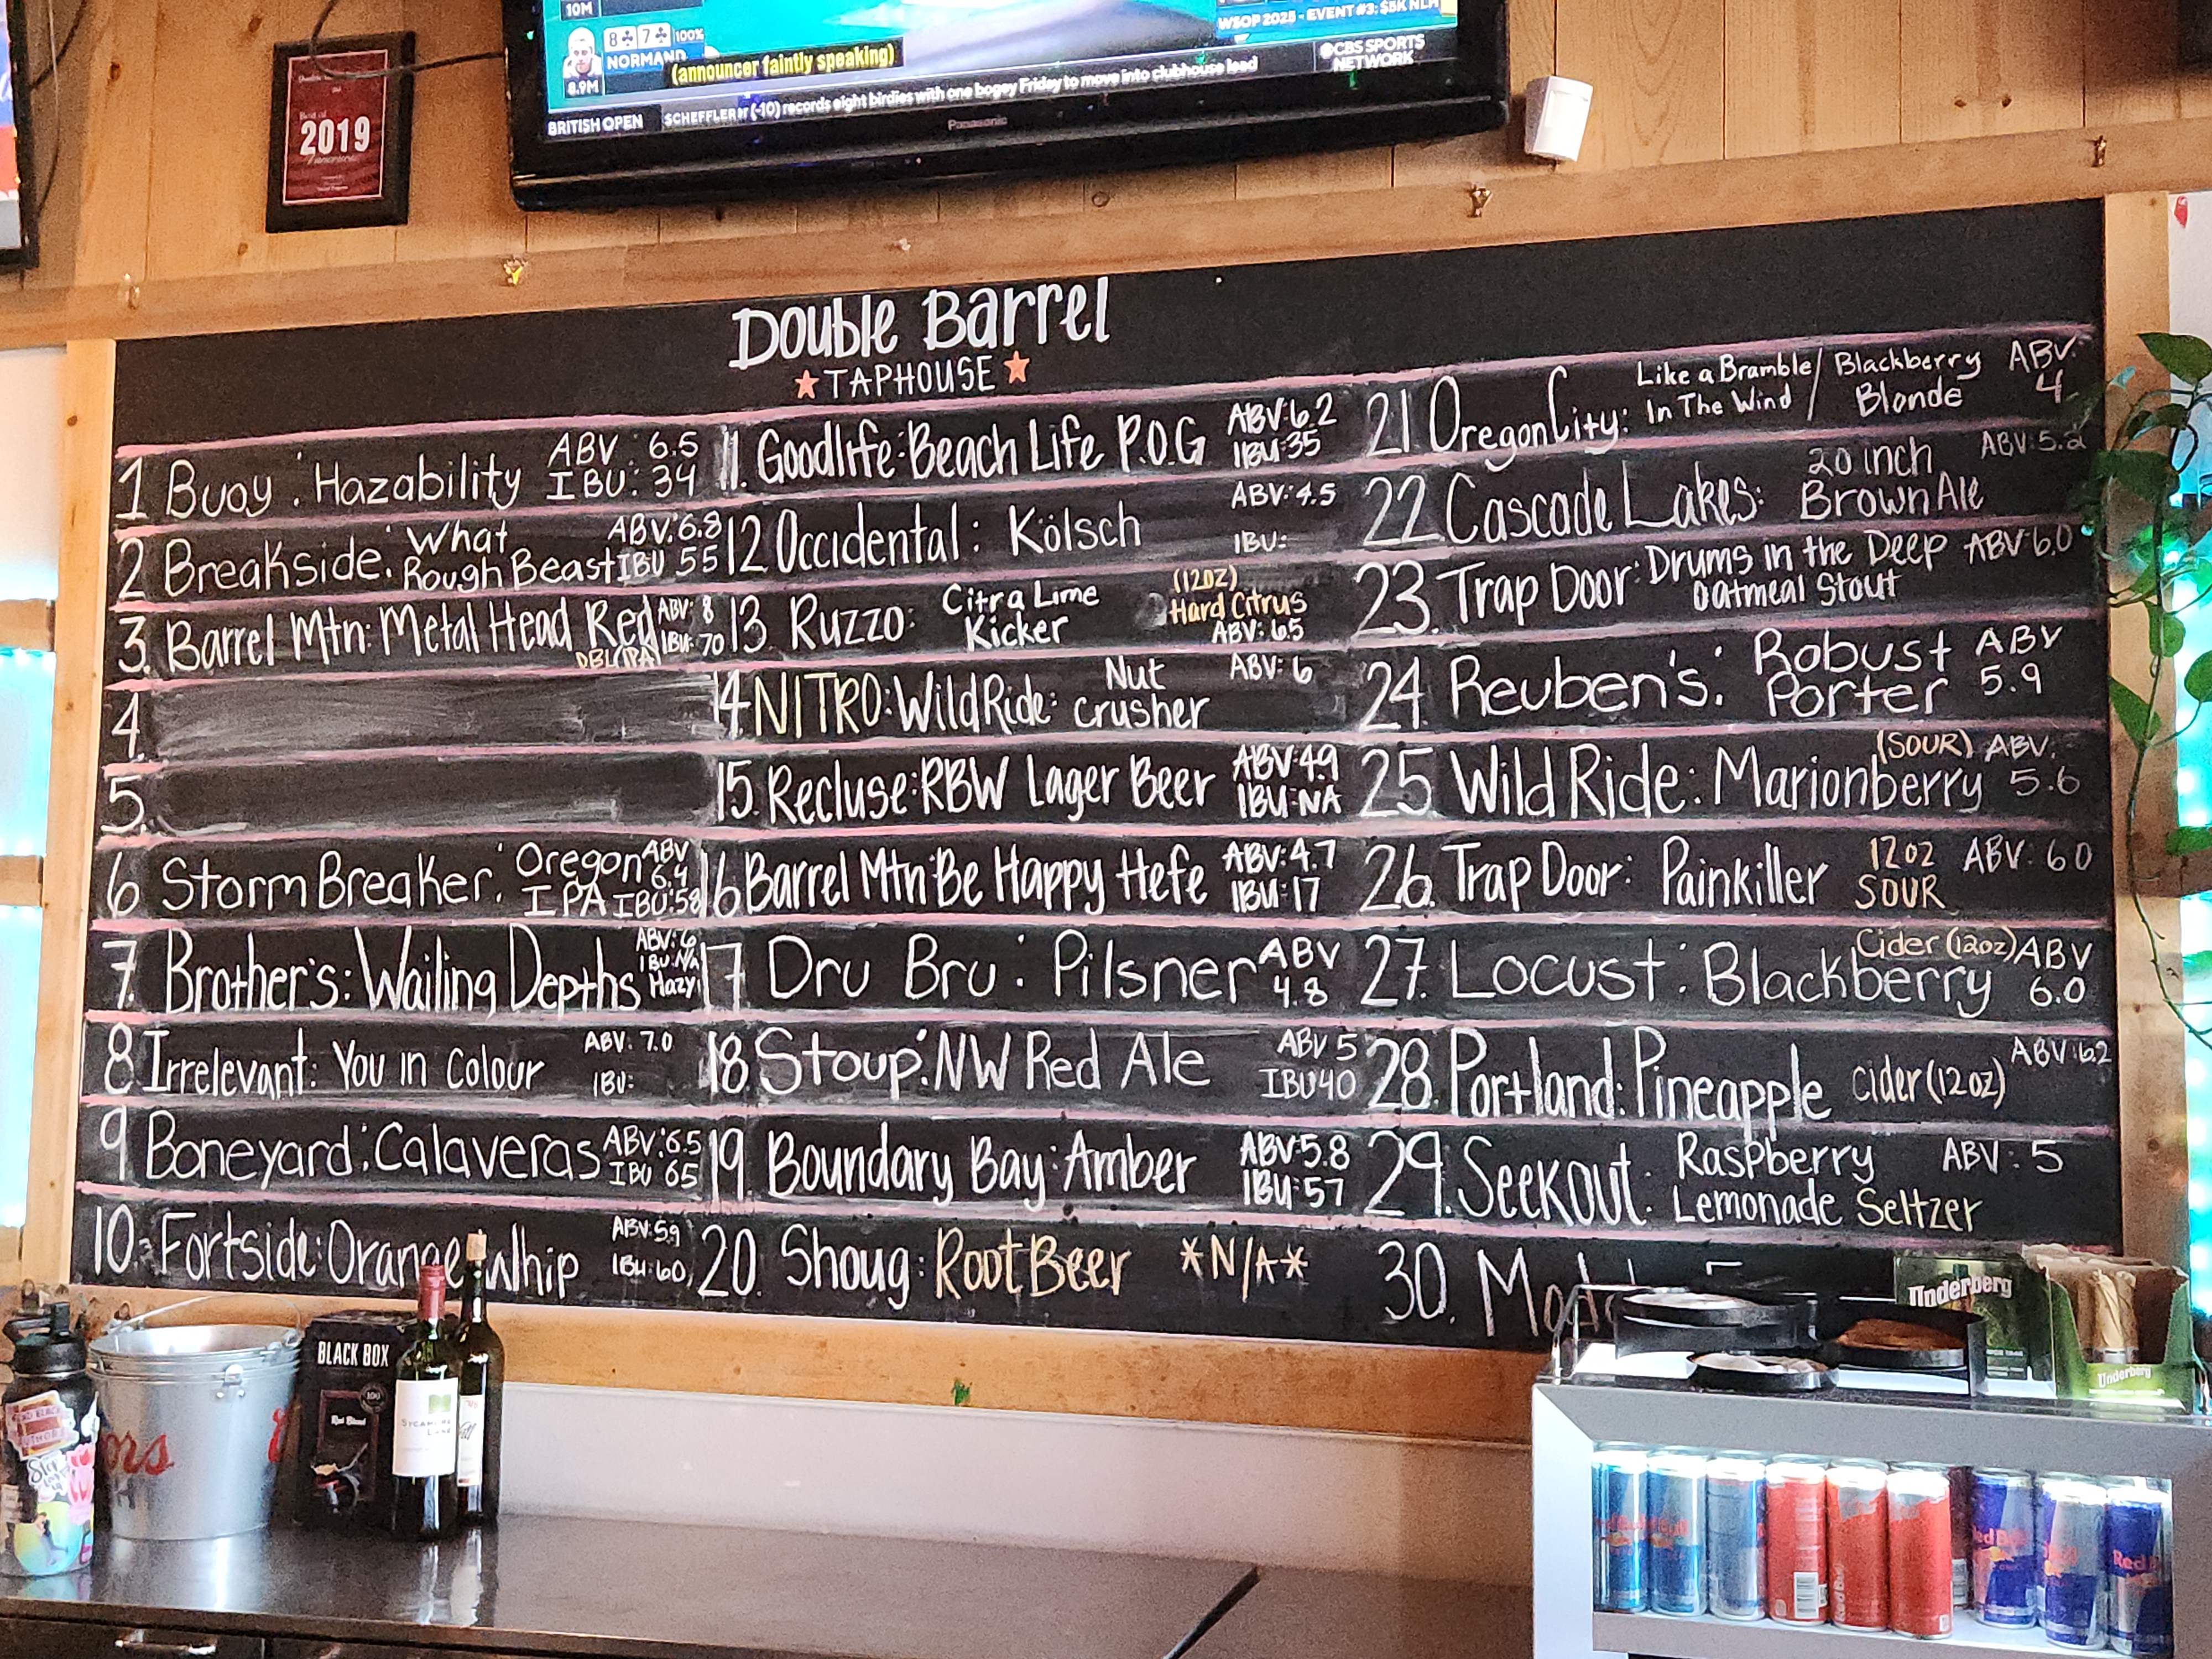 10M
8♣ 7♣ 100%
NORMAND
8.9M
(announcer faintly speaking)
WSOP 2025 - EVENT #3: $5K NLH
CBS SPORTS
NETWORK
BRITISH OPEN
SCHEFFLER (-10) records eight birdies with one bogey Friday to move into clubhouse lead
Panasonic
Best of
2019
Double Barrel
TAPHOUSE
1 Buoy: Hazability ABV: 6.5 IBU: 34
2 Breakside: What Rough Beast ABV: 6.8 IBU 55
3. Barrel Mtn: Metal Head Red DBL IPA ABV: 8 IBU: 70
4.
5.
6 StormBreaker: Oregon IPA ABV 6.4 IBU:58
7. Brother's: Wailing Depths ABV: 6 IBU: N/A Hazy
8 Irrelevant: You in Colour ABV: 7.0 IBU:
9 Boneyard: Calaveras ABV: 6.5 IBU 65
10: Fortside: Orange Whip ABV: 5.9 IBU: 60
11. Goodlife: Beach Life P.O.G ABV: 6.2 IBU: 35
12 Occidental: Kölsch ABV: 4.5 IBU:
13. Ruzzo: Citra Lime Kicker (12oz) Hard Citrus ABV: 6.5
14 NITRO: Wild Ride: Nut Crusher ABV: 6
15. Recluse: RBW Lager Beer ABV: 4.9 IBU: NA
16 Barrel Mtn: Be Happy Hefe ABV: 4.7 IBU: 17
17 Dru Bru: Pilsner ABV 4.8
18. Stoup: NW Red Ale ABV 5 IBU 40
19. Boundary Bay: Amber ABV: 5.8 IBU: 57
20. Shoug: Root Beer *N/A*
21 Oregon City: Like a Bramble In The Wind / Blackberry Blonde ABV: 4
22 Cascade Lakes: 20 inch Brown Ale ABV: 5.2
23. Trap Door: Drums in the Deep Oatmeal Stout ABV: 6.0
24. Reuben's: Robust Porter ABV 5.9
25 Wild Ride: Marionberry (SOUR) ABV: 5.6
26. Trap Door: Painkiller 12oz SOUR ABV: 6.0
27. Locust: Blackberry Cider (12oz) ABV 6.0
28. Portland: Pineapple Cider (12oz) ABV: 6.2
29. Seekout: Raspberry Lemonade Seltzer ABV: 5
30.
Underberg
Underberg
BLACK BOX
Red Blend
Red Bull
Red Bull
Red Bull